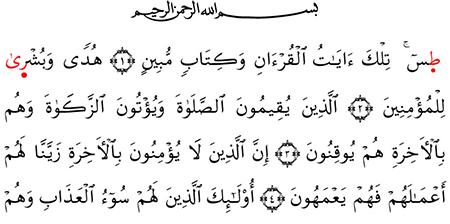 بسم الله الرحمن الرحيم
طسٓۚ تِلْكَ ءَايَٰتُ ٱلْقُرْءَانِ وَكِتَابٍ مُّبِينٍ ﴿١﴾ هُدًى وَبُشْرِىٰ
لِلْمُؤْمِنِينَ ﴿٢﴾ ٱلَّذِينَ يُقِيمُونَ ٱلصَّلَوٰةَ وَيُؤْتُونَ ٱلزَّكَوٰةَ وَهُم
بِٱلْأَخِرَةِ هُمْ يُوقِنُونَ ﴿٣﴾ إِنَّ ٱلَّذِينَ لَا يُؤْمِنُونَ بِٱلْأَخِرَةِ زَيَّنَّا لَهُمْ
أَعْمَٰلَهُمْ فَهُمْ يَعْمَهُونَ ﴿٤﴾ أُوْلَٰٓئِكَ ٱلَّذِينَ لَهُمْ سُوٓءُ ٱلْعَذَابِ وَهُمْ